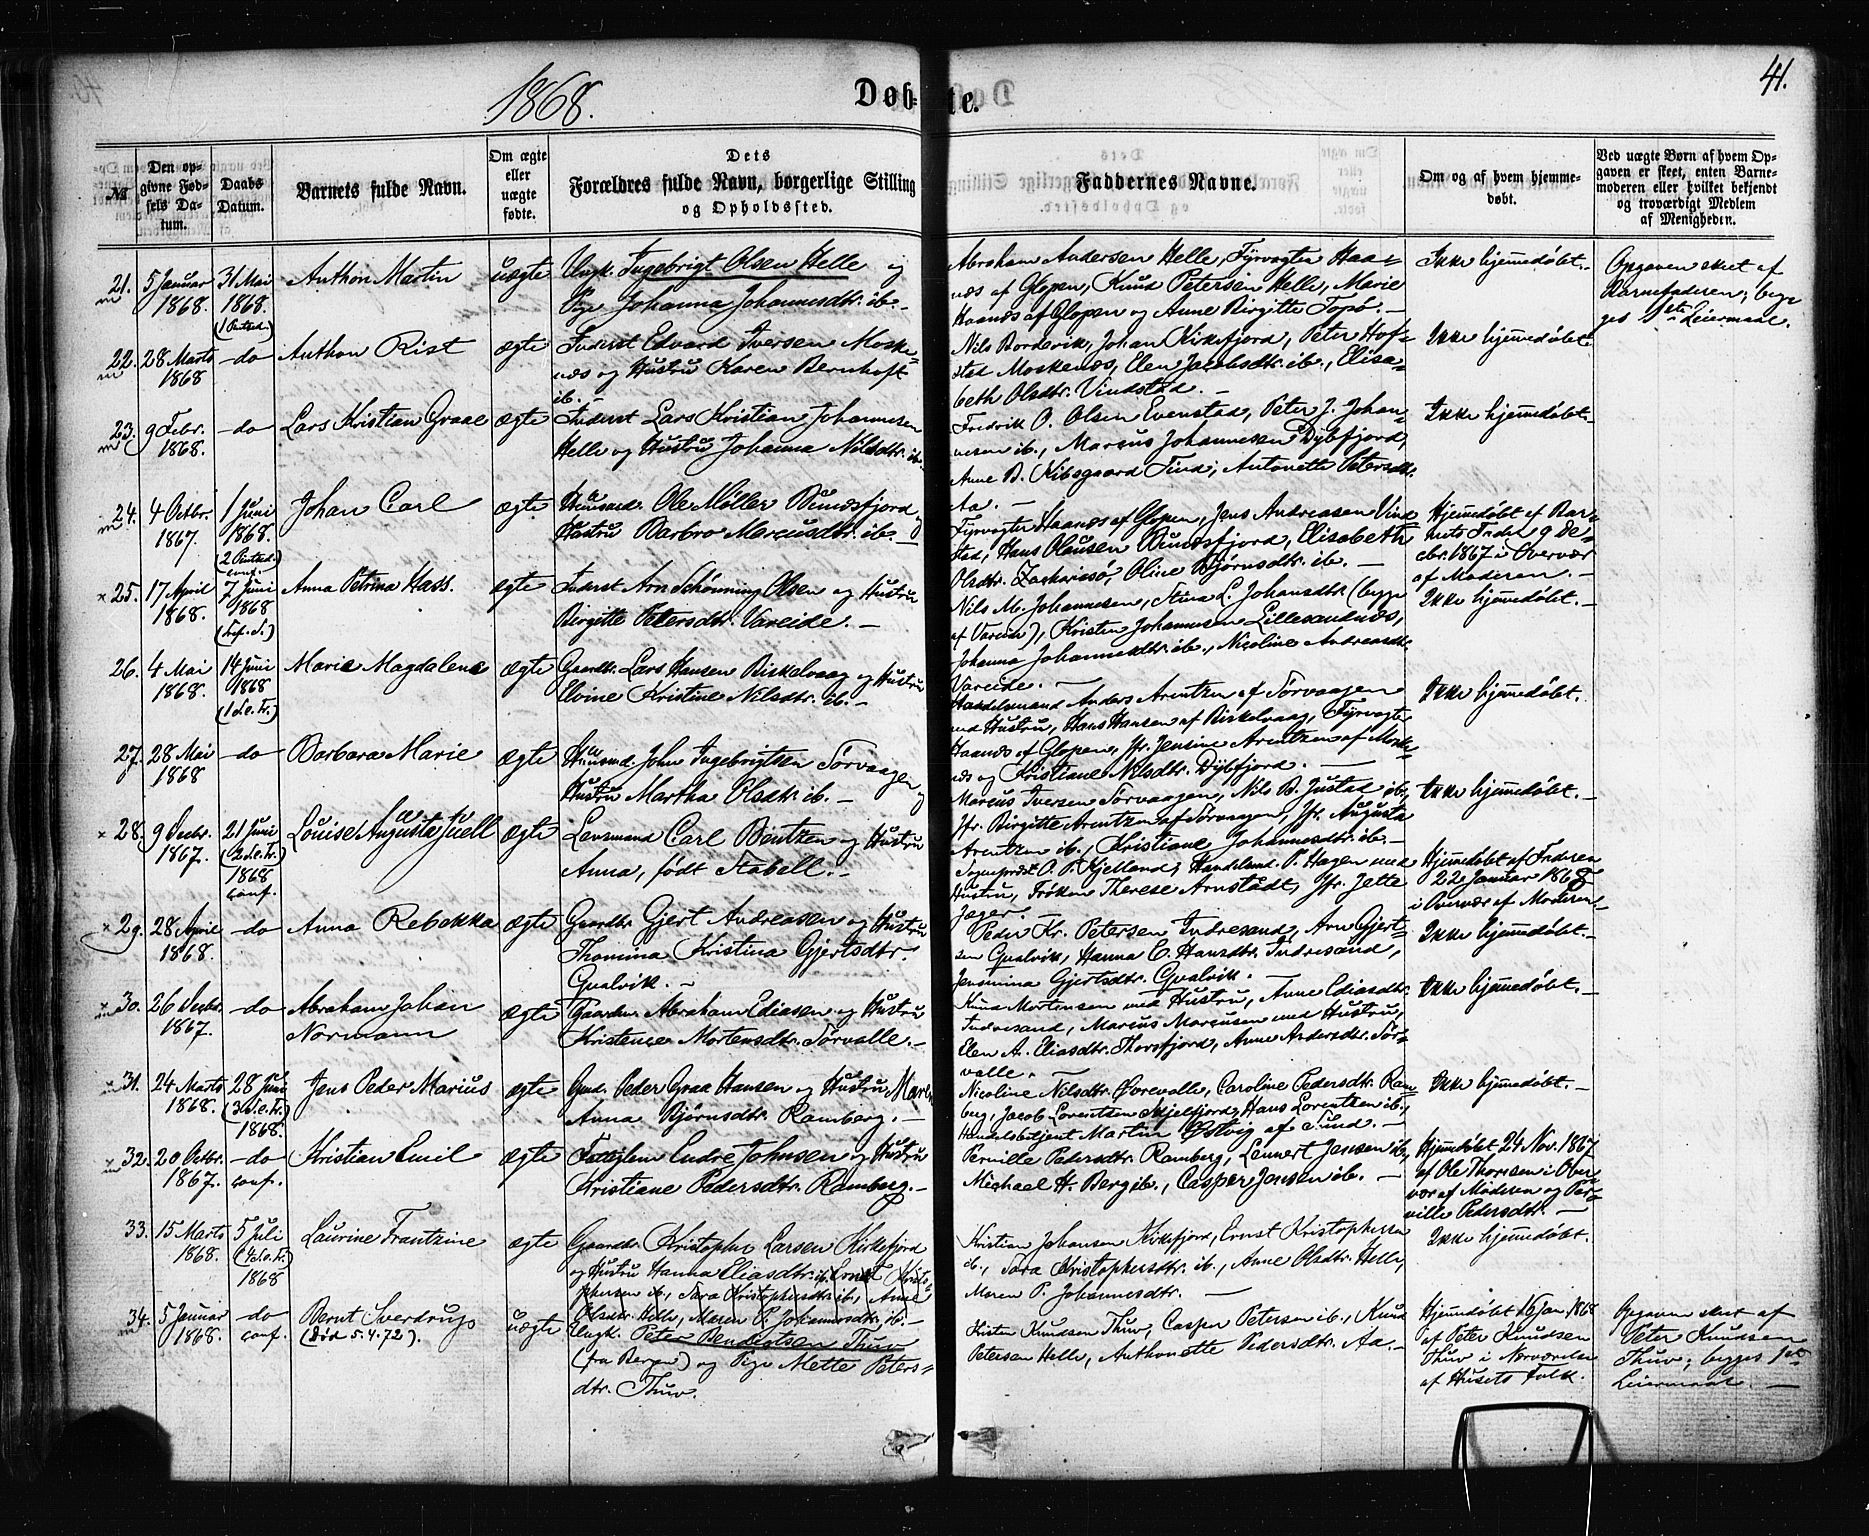 41.
1868.
Døbte.
№
Den opgivne Fødsels Datum.
Daabs Datum.
Barnets fulde Navn.
Om ægte eller uægte fødte.
Dets Forældres fulde Navn, borgerlige Stilling og Opholdssted.
Faddernes Navne.
Om og af hvem hjemmedøbt.
Ved uægte Børn af hvem Opgaven er skeet, enten Barnemoderen eller hvilket bekjendt og troværdigt Medlem af Menigheden.
21. m
5 Januar 1868.
31 Mai 1868. (1 Pintsed.)
Anthon Martin
uægte
Ungk. Ingebrigt Olsen Helle og
Pige Johanna Johannesdtr. ib. —
Abraham Andersen Helle, Fyrvogter Haa-
næs af Glopen, Knud Petersen Helle, Marie
Haanæs af Glopen og Anne Birgitte Topø. —
Ikke hjemmedøbt. —
Opgaven skeet af
Barnefaderen; begges 1ste Leiermaal.
22. m
28 Marts 1868
— do
Anthon Rist
ægte
Inderst Edvard Iversen Moske-
næs og Hustru Karen Bernhoft
ib. —
Nils Bordevik, Johan Kirkefjord, Peter Hof-
stad Moskenæs, Elen Jacobsdtr. ib., Elisa-
beth Olsdtr. Vindstad. —
Ikke hjemmedøbt
23. m
9 Febr. 1868.
— do
Lars Kristian Graae
ægte
Inderst Lars Kristian Johannesen
Helle og Hustru Johanna Nilsdtr. ib.
Fredrik O. Olsen Evenstad, Peter J. Johan-
nesen ib., Marcus Johannesen Dybfjord,
Anne B. Kibsgaard Tind; Antonette Petersdtr.
Aa. —
Ikke hjemmedøbt.
24. m
4 Octbr. 1867.
1 Juni 1868. (2 Pintsed.) conf.
Johan Carl
ægte
Huusmd. Ole Møller Bunæsfjord og
Hustru Barbro Marcusdtr. ib. —
Fyrvogter Haanæs af Glopen, Jens Andreasen Vind
stad, Hans Olausen Bunæsfjord, Elisabeth
Olsdtr. Zachariesø, Oline Bjørnsdtr. ib. —
Hjemmedøbt af Bar-
nets Fader 9 De-
cbr. 1867 i Overvær
af Moderen. —
× 25.
17 April 1868.
7 Juni 1868 (Tref. S.)
Anna Petrina Hass.
ægte
Inderst Arn Schönning Olsen og Hustru
Birgitte Petersdtr. Vareide. —
Nils M. Johannesen, Stina L. Johansdtr. (begge
af Vareide), Kristen Johannesen Lillesandnæs,
Johanna Johannesdtr. ib., Nicoline Andreasdtr.
Vareide. —
Ikke hjemmedøbt. —
26.
4 Mai 1868.
14 Juni 1868 (1 S. e. Tr.)
Marie Magdalena
ægte
Gaardbr. Lars Hansen Biskelvaag og Hustru
Elvine Kristine Nilsdtr. ib. —
Handelsmand Anders Arentzen af Sørvaagen
med Hustru, Hans Hansen af Biskelvaag, Fyrvogter
Haanæs af Glopen, Jfr. Jensine Arentzen af Moske-
næs og Kristiane Nilsdtr. Dybfjord. —
Ikke hjemmedøbt.
27.
28 Mai 1868
— do
Barbara Marie
ægte
Huusmd. John Ingebrigtsen Sørvaagen og
Hustru Martha Olsdtr. ib. —
Marcus Iversen Sørvaagen, Nils B. Justad ib.,
Jfr. Birgitte Arentzen af Sørvaagen, Jfr. Augusta
Arentzen ib., Kristiane Johannesdtr. ib. —
Ikke hjemmedøbt. —
× 28.
9 Decbr. 1867.
21 Juni (2 S. e. Tr.) 1868 conf.
Louise Augusta Juell
ægte
Lensmand Carl Bentzen og Hustru
Anna, født Stabell. —
Sognepræst O. P. Kjelland, Handelsmd. P. Hagen med
Hustru, Frøken Therese Arnstadt, Jfr. Jette
Jæger. —
Hjemmedøbt af Faderen
22 Januar 1868
i Overvær af Moderen. —
× 29.
28 April 1868.
— do
Anna Rebekka
ægte
Gaardbr. Gjert Andreasen og Hustru
Thomina Kristina Gjertsdtr.
Qvalvik. —
Peder Kr. Petersen Indresand, Arn Gjert-
sen Qvalvik, Hanna C. Hansdtr. Indresand,
Jensmina Gjertsdtr. Qvalvik. —
Ikke hjemmedøbt. —
× 30. m
26 Decbr. 1867.
— do
Abraham Johan
Normann
ægte
Gaardbr. Abraham Ediasen og Hustru
Kristence Mortensdtr. Sørvalle. —
Knud Mortensen med Hustru, Anne Ediasdtr.
Indresand, Marcus Marcusen med Hustru,
Elen A. Eliasdtr. Thorsfjord, Anne Andersdtr. Sør-
valle. —
Ikke hjemmedøbt. —
× 31. m
24 Marts 1868.
28 Juni (3 S. e. Tr.) 1868.
Jens Peder Marius
ægte
Gmd. Peder Graa Hansen og Hustru Maren
Anna Bjørnsdtr. Ramberg. —
Nicoline Nilsdtr. Ørevalle, Caroline Pedersdtr. Ram
berg, Jacob Lorentzen Skjelfjord, Hans Lorentzen ib.,
Handelsbetjent Martin Østvig af Sund. —
Ikke hjemmedøbt. —
32. m
20 Octbr. 1867.
— do conf.
Kristian Emil
ægte
Fattiglem Endre Johnsen og Hustru
Kristiane Pedersdtr. Ramberg. —
Pernille Pedersdtr. Ramberg, Lennert Jensen ib.,
Michael H. Berg ib., Casper Jensen ib. —
Hjemmedøbt 24 Nov. 1867
af Ole Thomsen i Over-
vær af Moderen og Per-
nille Pedersdtr. —
33.
15 Marts 1868.
5 Juli (4 S. e. Tr.) 1868
Laurine Frantzine
ægte
Gaardbr. Kristopher Larsen Kirkefjord
og Hustru Hanna Eliasdtr. ib. Ernst Kristo-
phersen ib., Sara Kristophersdtr. ib., Anne
Olsdtr. Helle, Maren P. Johannesdtr. ib. —
Kristian Johansen Kirkefjord, Ernst Kristophersen
ib., Sara Kristophersdtr. ib., Anne Olsdtr. Helle,
Maren P. Johannesdtr. —
Ikke hjemmedøbt.
34. m
5 Januar 1868.
— do conf.
Bernt Sverdrup
(Død 5.4.72).
uægte
Ungk. Peter Bendiktsen Thuv
(fra Bergen) og Pige Mette Peters-
dtr. Thuv.
Kirsten Knudsen Thuv, Casper Petersen ib., Knud
Petersen Helle, Anthonette Pedersdtr. Aa. —
Hjemmedøbt 16 Jan. 1868
af Peter Knudsen
Thuv i Nærværelse
af Husets Folk.
Opgaven skeet af
Peter Knudsen
Thuv; begges 1ste
Leiermaal. —